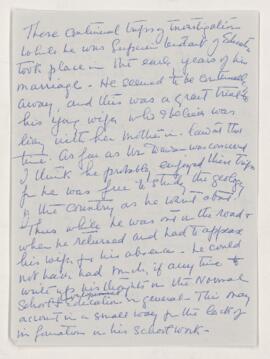 These continual trips of investigation
while he was Superintendent of Schools
took place in the early years of his
marriage. He seemed to be continually
away, and this was a great trial to
his young wife, who I believe was
living with her mother-in-law at this
time. As far as Mr Dawson was concerned
I think he probably enjoyed these trips
for he was free to study the geology
of the country as he went about.
Thus while he was on the road &
when he returned and had to appease
his wife for his absence - he could
not have had much, if any time to
write up his thoughts on the Normal
School & Education in general. This may
account in a small way for the lack of
information on his school work.